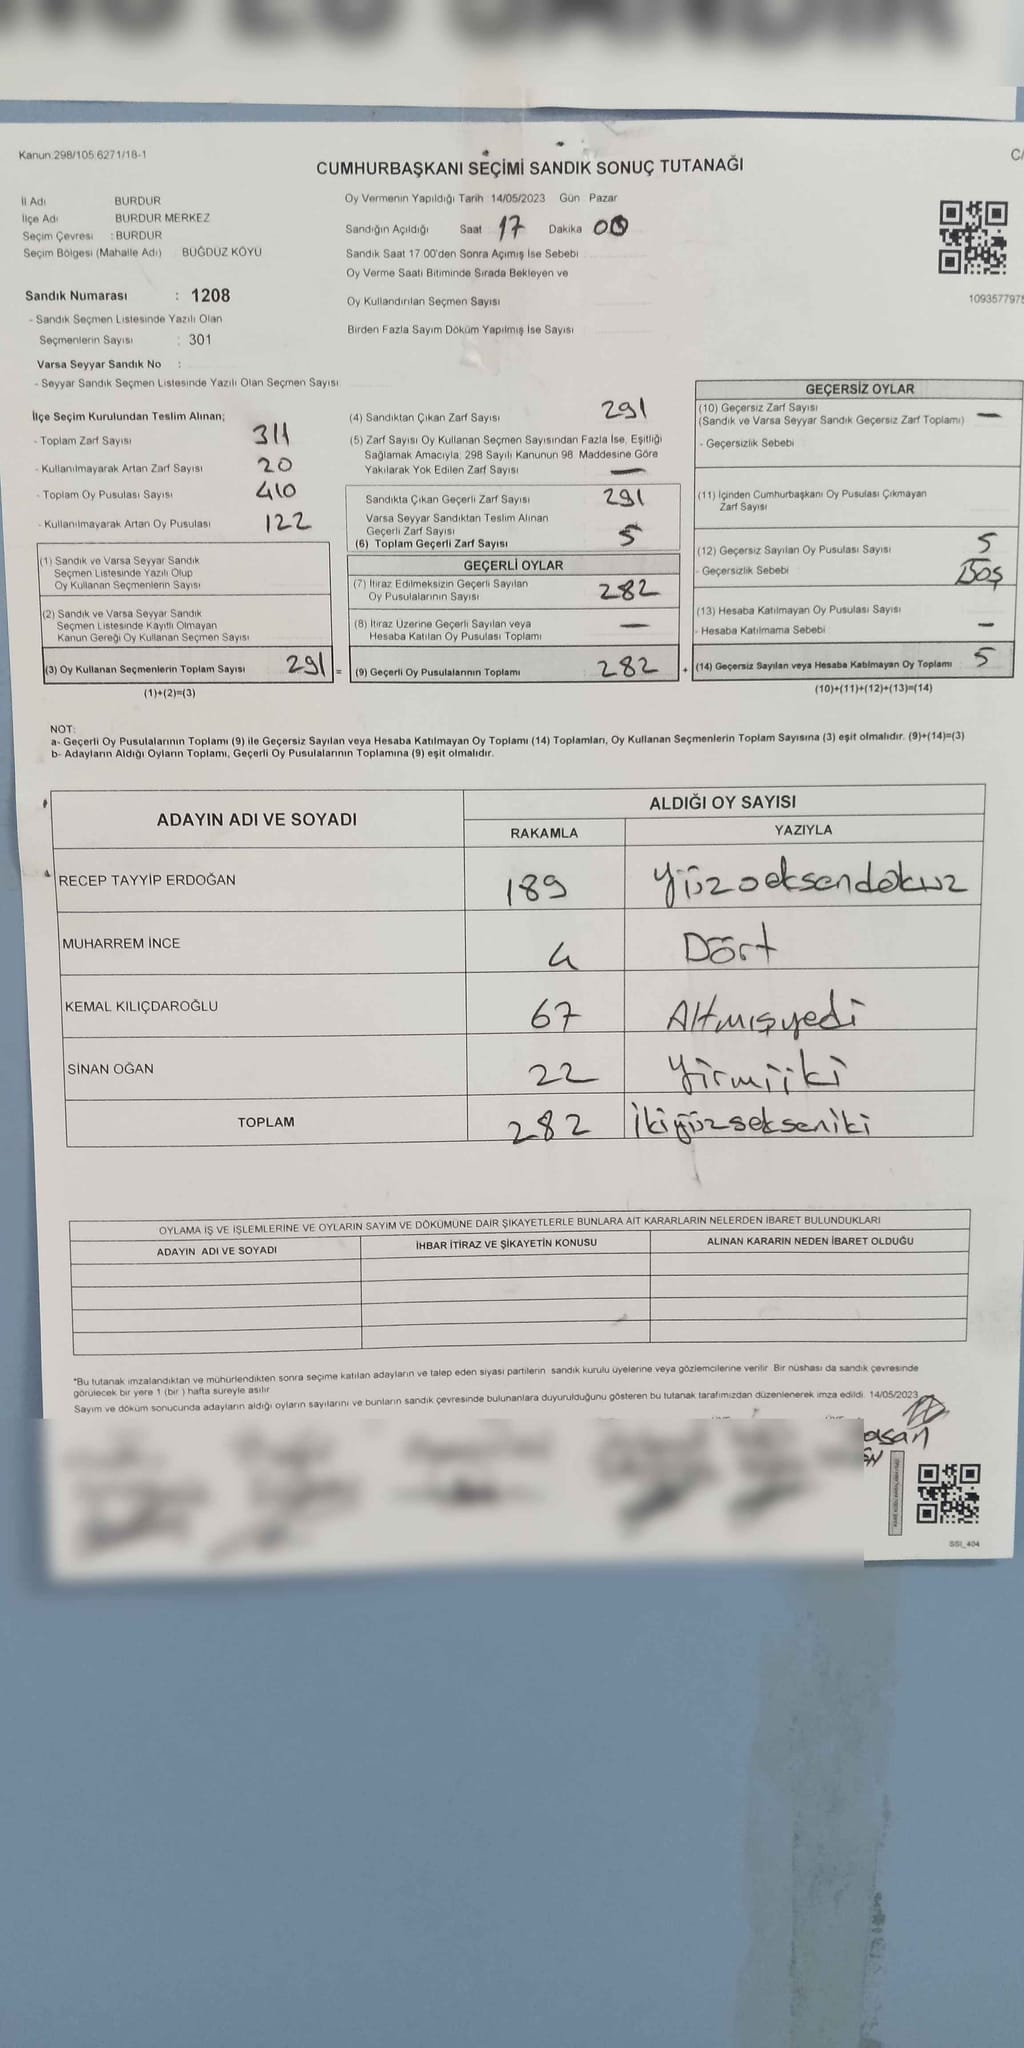 Kanun:298/105.6271/18-1
CUMHURBAŞKANI SEÇİMİ SANDIK SONUÇ TUTANAĞI
C/
İl Adı BURDUR
İlçe Adı BURDUR MERKEZ
Seçim Çevresi : BURDUR
Seçim Bölgesi (Mahalle Adı) BUĞDÜZ KÖYÜ
Oy Vermenin Yapıldığı Tarih 14/05/2023 Gün Pazar
Sandığın Açıldığı Saat 17 Dakika 00
Sandık Saat 17.00'den Sonra Açımış İse Sebebi
Oy Verme Saati Bitiminde Sırada Bekleyen ve
Oy Kullandırılan Seçmen Sayısı
Birden Fazla Sayım Döküm Yapılmış İse Sayısı
1093577975
Sandık Numarası : 1208
- Sandık Seçmen Listesinde Yazılı Olan
Seçmenlerin Sayısı : 301
Varsa Seyyar Sandık No :
- Seyyar Sandık Seçmen Listesinde Yazılı Olan Seçmen Sayısı
İlçe Seçim Kurulundan Teslim Alınan;
- Toplam Zarf Sayısı 311
- Kullanılmayarak Artan Zarf Sayısı 20
- Toplam Oy Pusulası Sayısı 410
- Kullanılmayarak Artan Oy Pusulası 122
(1) Sandık ve Varsa Seyyar Sandık
Seçmen Listesinde Yazılı Olup
Oy Kullanan Seçmenlerin Sayısı
(2) Sandık ve Varsa Seyyar Sandık
Seçmen Listesinde Kayıtlı Olmayan
Kanun Gereği Oy Kullanan Seçmen Sayısı
(3) Oy Kullanan Seçmenlerin Toplam Sayısı 291 =
(1)+(2)=(3)
(4) Sandıktan Çıkan Zarf Sayısı 291
(5) Zarf Sayısı Oy Kullanan Seçmen Sayısından Fazla İse, Eşitliği
Sağlamak Amacıyla, 298 Sayılı Kanunun 98. Maddesine Göre
Yakılarak Yok Edilen Zarf Sayısı —
Sandıkta Çıkan Geçerli Zarf Sayısı 291
Varsa Seyyar Sandıktan Teslim Alınan
Geçerli Zarf Sayısı 5
(6) Toplam Geçerli Zarf Sayısı
GEÇERLİ OYLAR
(7) İtiraz Edilmeksizin Geçerli Sayılan
Oy Pusulalarının Sayısı 282
(8) İtiraz Üzerine Geçerli Sayılan veya
Hesaba Katılan Oy Pusulası Toplamı —
(9) Geçerli Oy Pusulalarının Toplamı 282 +
GEÇERSİZ OYLAR
(10) Geçersiz Zarf Sayısı —
(Sandık ve Varsa Seyyar Sandık Geçersiz Zarf Toplamı)
- Geçersizlik Sebebi
(11) İçinden Cumhurbaşkanı Oy Pusulası Çıkmayan
Zarf Sayısı
(12) Geçersiz Sayılan Oy Pusulası Sayısı 5
- Geçersizlik Sebebi Boş
(13) Hesaba Katılmayan Oy Pusulası Sayısı
- Hesaba Katılmama Sebebi —
(14) Geçersiz Sayılan veya Hesaba Katılmayan Oy Toplamı 5
(10)+(11)+(12)+(13)=(14)
NOT:
a- Geçerli Oy Pusulalarının Toplamı (9) ile Geçersiz Sayılan veya Hesaba Katılmayan Oy Toplamı (14) Toplamları, Oy Kullanan Seçmenlerin Toplam Sayısına (3) eşit olmalıdır. (9)+(14)=(3)
b- Adayların Aldığı Oyların Toplamı, Geçerli Oy Pusulalarının Toplamına (9) eşit olmalıdır.
ADAYIN ADI VE SOYADI ALDIĞI OY SAYISI
RAKAMLA YAZIYLA
RECEP TAYYİP ERDOĞAN 189 Yüzseksendokuz
MUHARREM İNCE 4 Dört
KEMAL KILIÇDAROĞLU 67 Altmışyedi
SİNAN OĞAN 22 Yirmiiki
TOPLAM 282 İkiyüzsekseniki
OYLAMA İŞ VE İŞLEMLERİNE VE OYLARIN SAYIM VE DÖKÜMÜNE DAİR ŞİKAYETLERLE BUNLARA AİT KARARLARIN NELERDEN İBARET BULUNDUKLARI
ADAYIN ADI VE SOYADI İHBAR İTİRAZ VE ŞİKAYETİN KONUSU ALINAN KARARIN NEDEN İBARET OLDUĞU
*Bu tutanak imzalandıktan ve mühürlendikten sonra seçime katılan adayların ve talep eden siyasi partilerin sandık kurulu üyelerine veya gözlemcilerine verilir. Bir nüshası da sandık çevresinde
görülecek bir yere 1 (bir ) hafta süreyle asılır
Sayım ve döküm sonucunda adayların aldığı oyların sayılarını ve bunların sandık çevresinde bulunanlara duyurulduğunu gösteren bu tutanak tarafımızdan düzenlenerek imza edildi. 14/05/2023
SSI_404